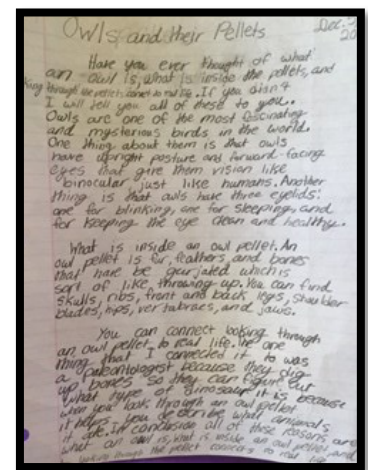 Owls and their Pellets
Dec.
20
Have you ever thought of what
an owl is, what is inside the pellets, and
king through the pellets connect to real life. If you didn't
I will tell you all of these to you.
Owls are one of the most fascinating
and mysterious birds in the world.
One thing about them is that owls
have upright posture and forward-facing
eyes that give them vision like
binocular just like humans. Another
thing is that owls have three eyelids:
one for blinking, one for sleeping, and
for keeping the eye clean and healthy.
What is inside an owl pellet. An
owl pellet is fur, feathers, and bones
that have be gurjated which is
sort of like throwing up. You can find
skulls, ribs, front and back legs, shoulder
blades, hips, vertabraes, and jaws.
You can connect looking through
an owl pellet to real life. The one
thing that I connected it to was
a paleontologist because they dig
up bones so they can figure out
what type of dinosaur it is because
when you look through an owl pellet
it helps you describe what animals
it ate. In conclusion all of these reasons are
what an owl is, what is inside an owl pellet, and
looking through the pellet connects to real life